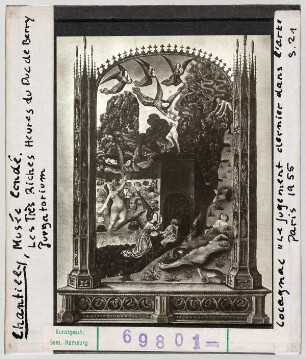 Chantilly, Musée Condé,
Les Très Riches Heures du Duc de Berry
Purgatorium
Kunstgesch.
Sem. Hamburg
69801-
Cocagnac "Le Jugement dernier dans l'art"
Paris 1955
S. 21